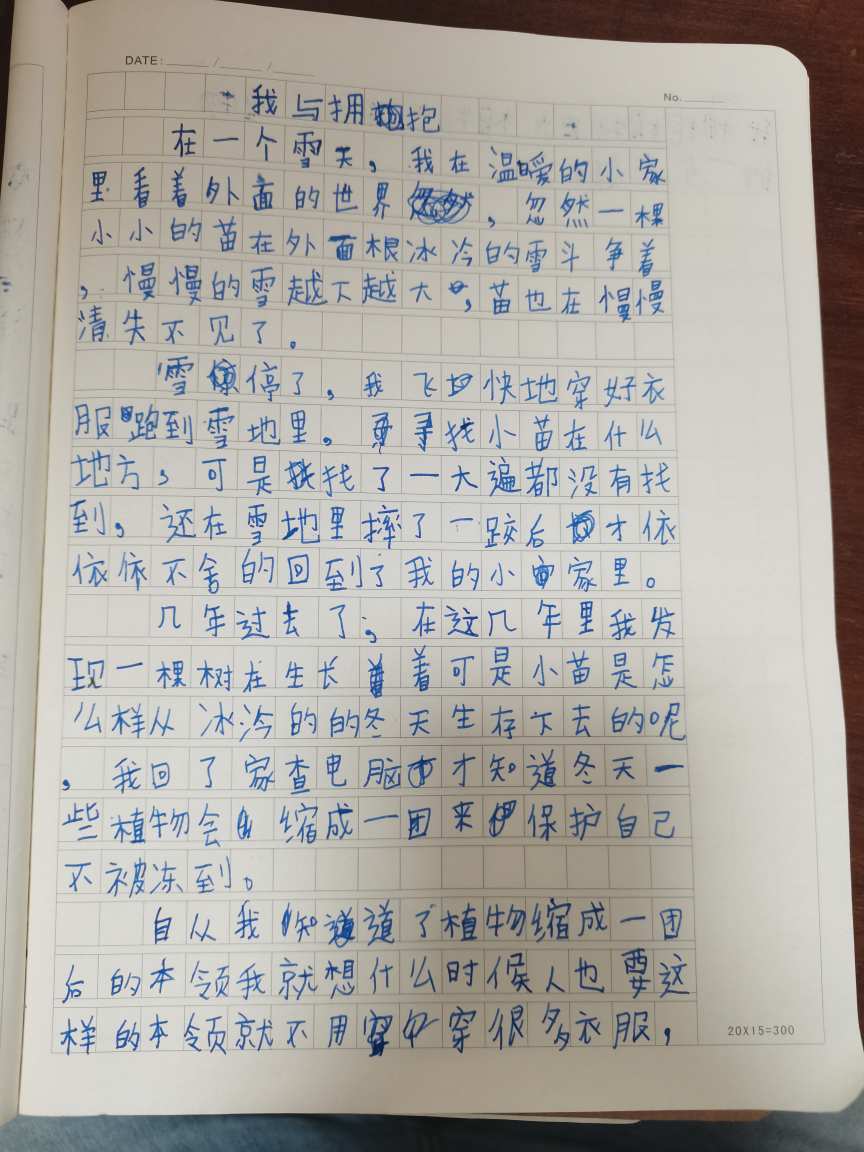 DATE: ____/____/____
No.
我与拥抱
在一个雪天，我在温暖的小家
里看着外面的世界，忽然一棵
小小的苗在外面根冰冷的雪斗争着
，慢慢的雪越下越大，苗也在慢慢
清失不见了。
雪停了，我飞快地穿好衣
服跑到雪地里。寻找小苗在什么
地方，可是找了一大遍都没有找
到，还在雪地里摔了一跤后才依
依依不舍的回到了我的小家里。
几年过去了，在这几年里我发
现一棵树在生长着可是小苗是怎
么样从冰冷的的冬天生存下去的呢
，我回了家查电脑才知道冬天一
些植物会缩成一团来保护自己
不被冻到。
自从我知道了植物缩成一团
后的本领我就想什么时候人也要这
样的本领就不用穿很多衣服，
20X15=300